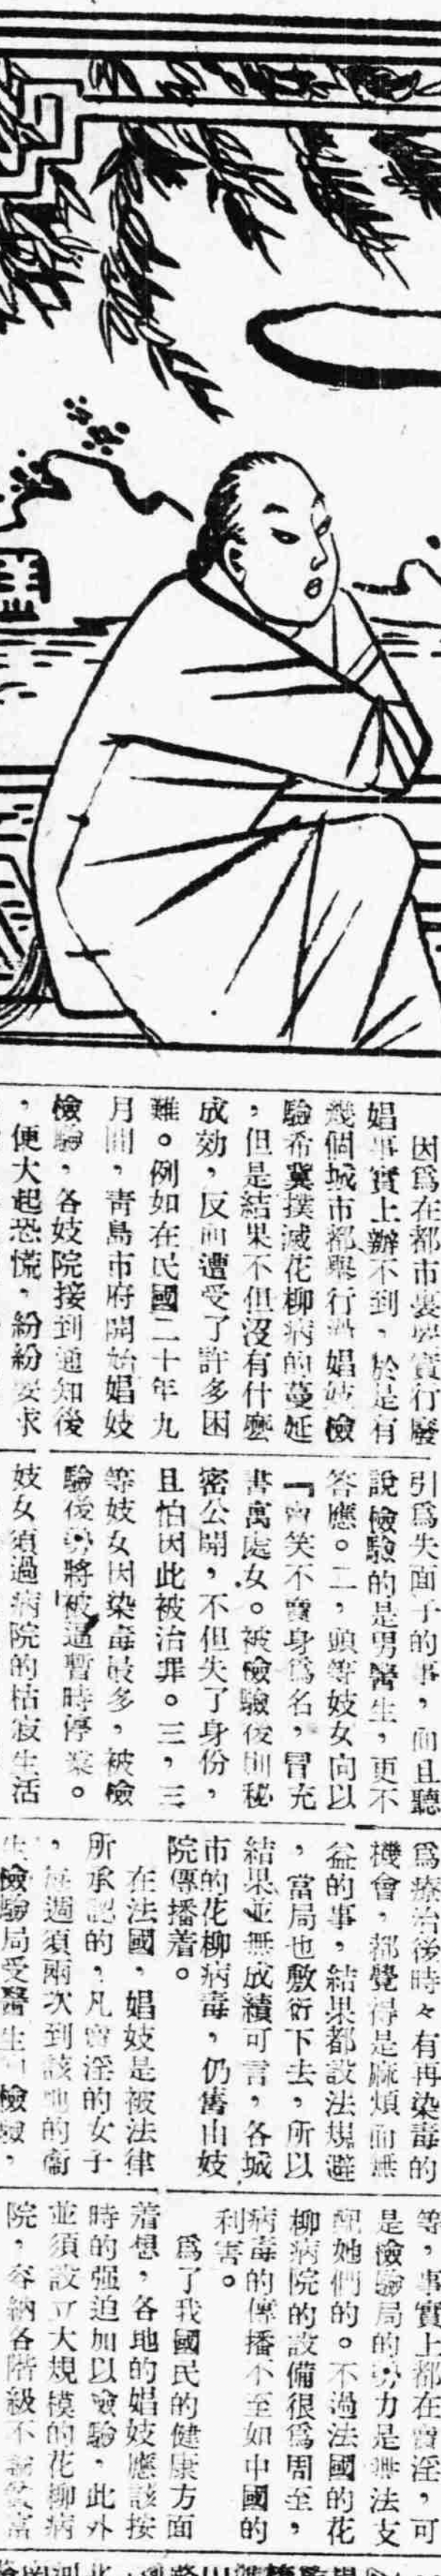 因爲在都市裏要實行廢
娼事實上辦不到，於是有
幾個城市都舉行過娼妓檢
驗希冀撲滅花柳病的蔓延
，但是結果不但沒有什麼
成効，反而遭受了許多困
難。例如在民國二十年九
月間，青島市府開始娼妓
檢驗，各妓院接到通知後
，便大起恐慌，紛紛要求
引爲失面子的事，而且聽
說檢驗的是男醫生，更不
答應。二，頭等妓女向以
『賣笑不賣身爲名，冒充
書寓處女。被檢驗後則秘
密公開，不但失了身份，
且怕因此被治罪。三，三
等妓女因染毒最多，被檢
驗後勢將被逼暫時停業。
妓女須過病院的枯寂生活
爲療治後時々有再染毒的
機會，都覺得是麻煩而無
益的事，結果都設法規避
，當局也敷衍下去，所以
結果並無成績可言，各城
市的花柳病毒，仍舊由妓
院傳播着。
在法國，娼妓是被法律
所承認的，凡賣淫的女子
，每週須兩次到該地的衞
生檢驗局受醫生的檢驗，
等，事實上都在賣淫，可
是檢驗局的勢力是無法支
配她們的。不過法國的花
柳病院的設備很爲周至，
病毒的傳播不至如中國的
利害。
爲了我國民的健康方面
着想，各地的娼妓應該按
時的强迫加以檢驗，此外
並須設立大規模的花柳病
院，容納各階級不論貧富